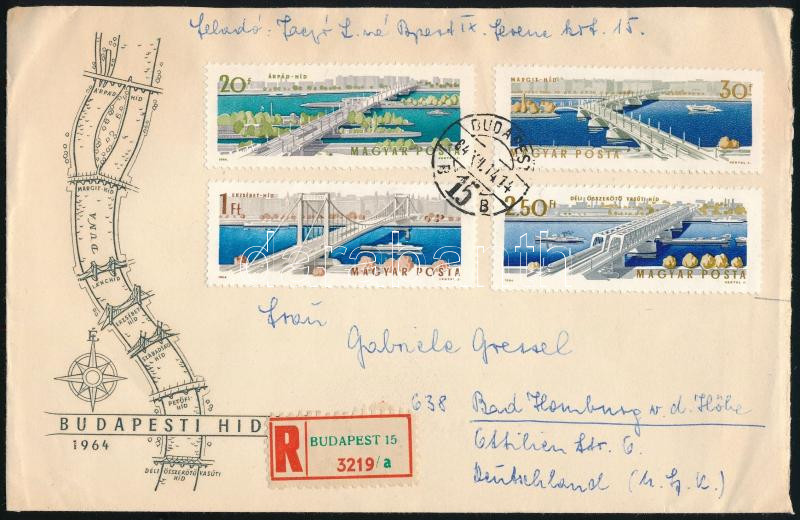 Feladó: L.né Bpest IX. Ferenc krt. 15.
20f ÁRPÁD-HÍD
MAGYAR POSTA
1964.
MARGIT-HÍD 30f
MAGYAR POSTA
1964. VERTEL J.
BUDAPEST
15
B B
1Ft ERZSÉBET-HÍD
MAGYAR POSTA
1964. VERTEL J.
2,50Ft DÉLI ÖSSZEKÖTŐ VASÚTI-HÍD
MAGYAR POSTA
1964. VERTEL J.
darabanth
ÁRPÁD-HÍD
MARGIT-HÍD
DUNA
LÁNCHÍD
ERZSÉBET
HÍD
SZABADSÁG
HÍD
É
PETŐFI-
HÍD
BUDAPESTI HID
1964
DÉLI ÖSSZEKÖTŐ VASÚTI
HÍD
Frau
Gabriele Gressel
638 Bad Homburg v. d. Höhe
Ottilien Str. 6.
Deutschland
R BUDAPEST 15
3219/a